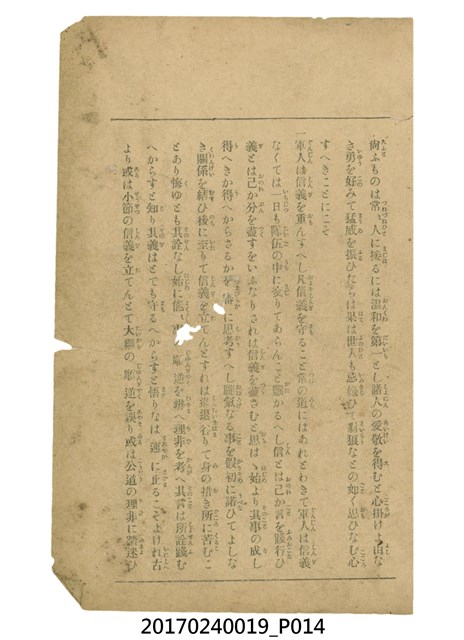 尙ふものは常々人に接るには温和を第一とし諸人の愛敬を得むと心掛けよ由な
き勇を好みて猛威を振ひたらは果は世人も忌嫌ひて豺狼なとの如く思ひなむ心
すへきことにこそ
一軍人は信義を重んすへし凡信義を守ること常の道にはあれとわきて軍人は信義
なくては一日も隊伍の中に交りてあらんこと難かるへし信とは己か言を踐行ひ
義とは己か分を盡すをいふなりされは信義を盡さむと思はゝ始より其事の成し
得へきか得へからさるかを審に思考すへし朧氣なる事を假初に諾ひてよしな
き關係を結ひ後に至りて信義を立てんとすれは進退谷りて身の措き所に苦むこ
とあり悔ゆとも其詮なし始に能 事 順逆を辨へ理非を考へ其言は所詮踐む
へからすと知り其義はとても守るへからすと悟りなは速に止るこそよけれ古
より或は小節の信義を立てんとて大綱の順逆を誤り或は公道の理非に踏迷ひ
20170240019_P014